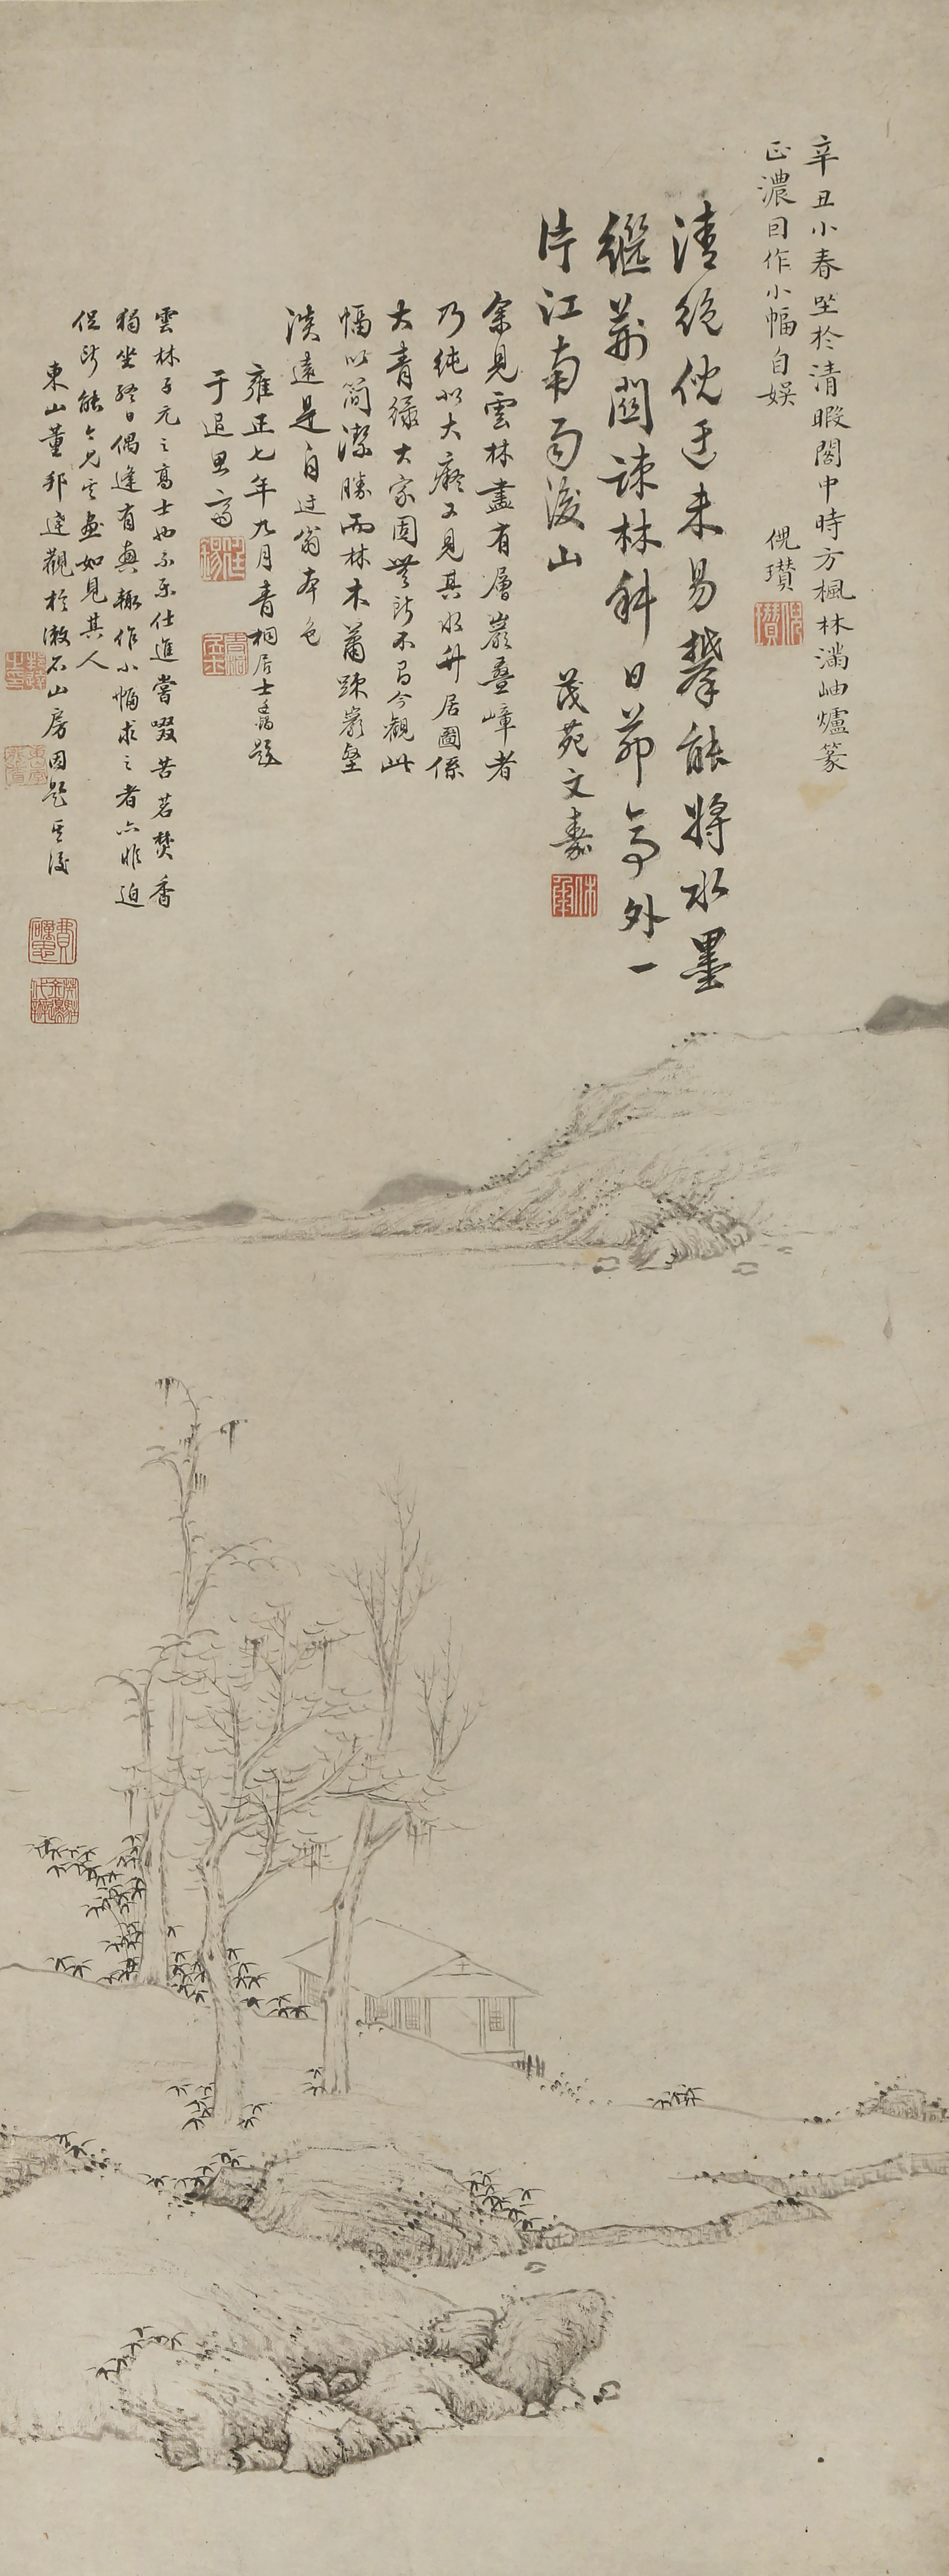 辛丑小春坐於清暇閣中時方楓林滿岫爐篆
正濃因作小幅自娛
倪瓚
清絕倪迂未易攀能將水墨
繼荊關疎林斜日茆亭外一
片江南雨後山
茂苑文嘉
余見雲林畫有層巖疊嶂者
乃純似大癡又見其水竹居圖係
大青綠大家固無所不有今觀此
幅以簡潔勝而林木蕭踈巖壑
淡遠是自迂翁本色
雍正七年九月青桐居士題
于追思齋
雲林子元之高士也不樂仕進嘗啜苦茗焚香
獨坐終日偶逢有興輒作小幅求之者亦非迫
促所能今見其畫如見其人
東山董邦達觀於漱石山房因題其後